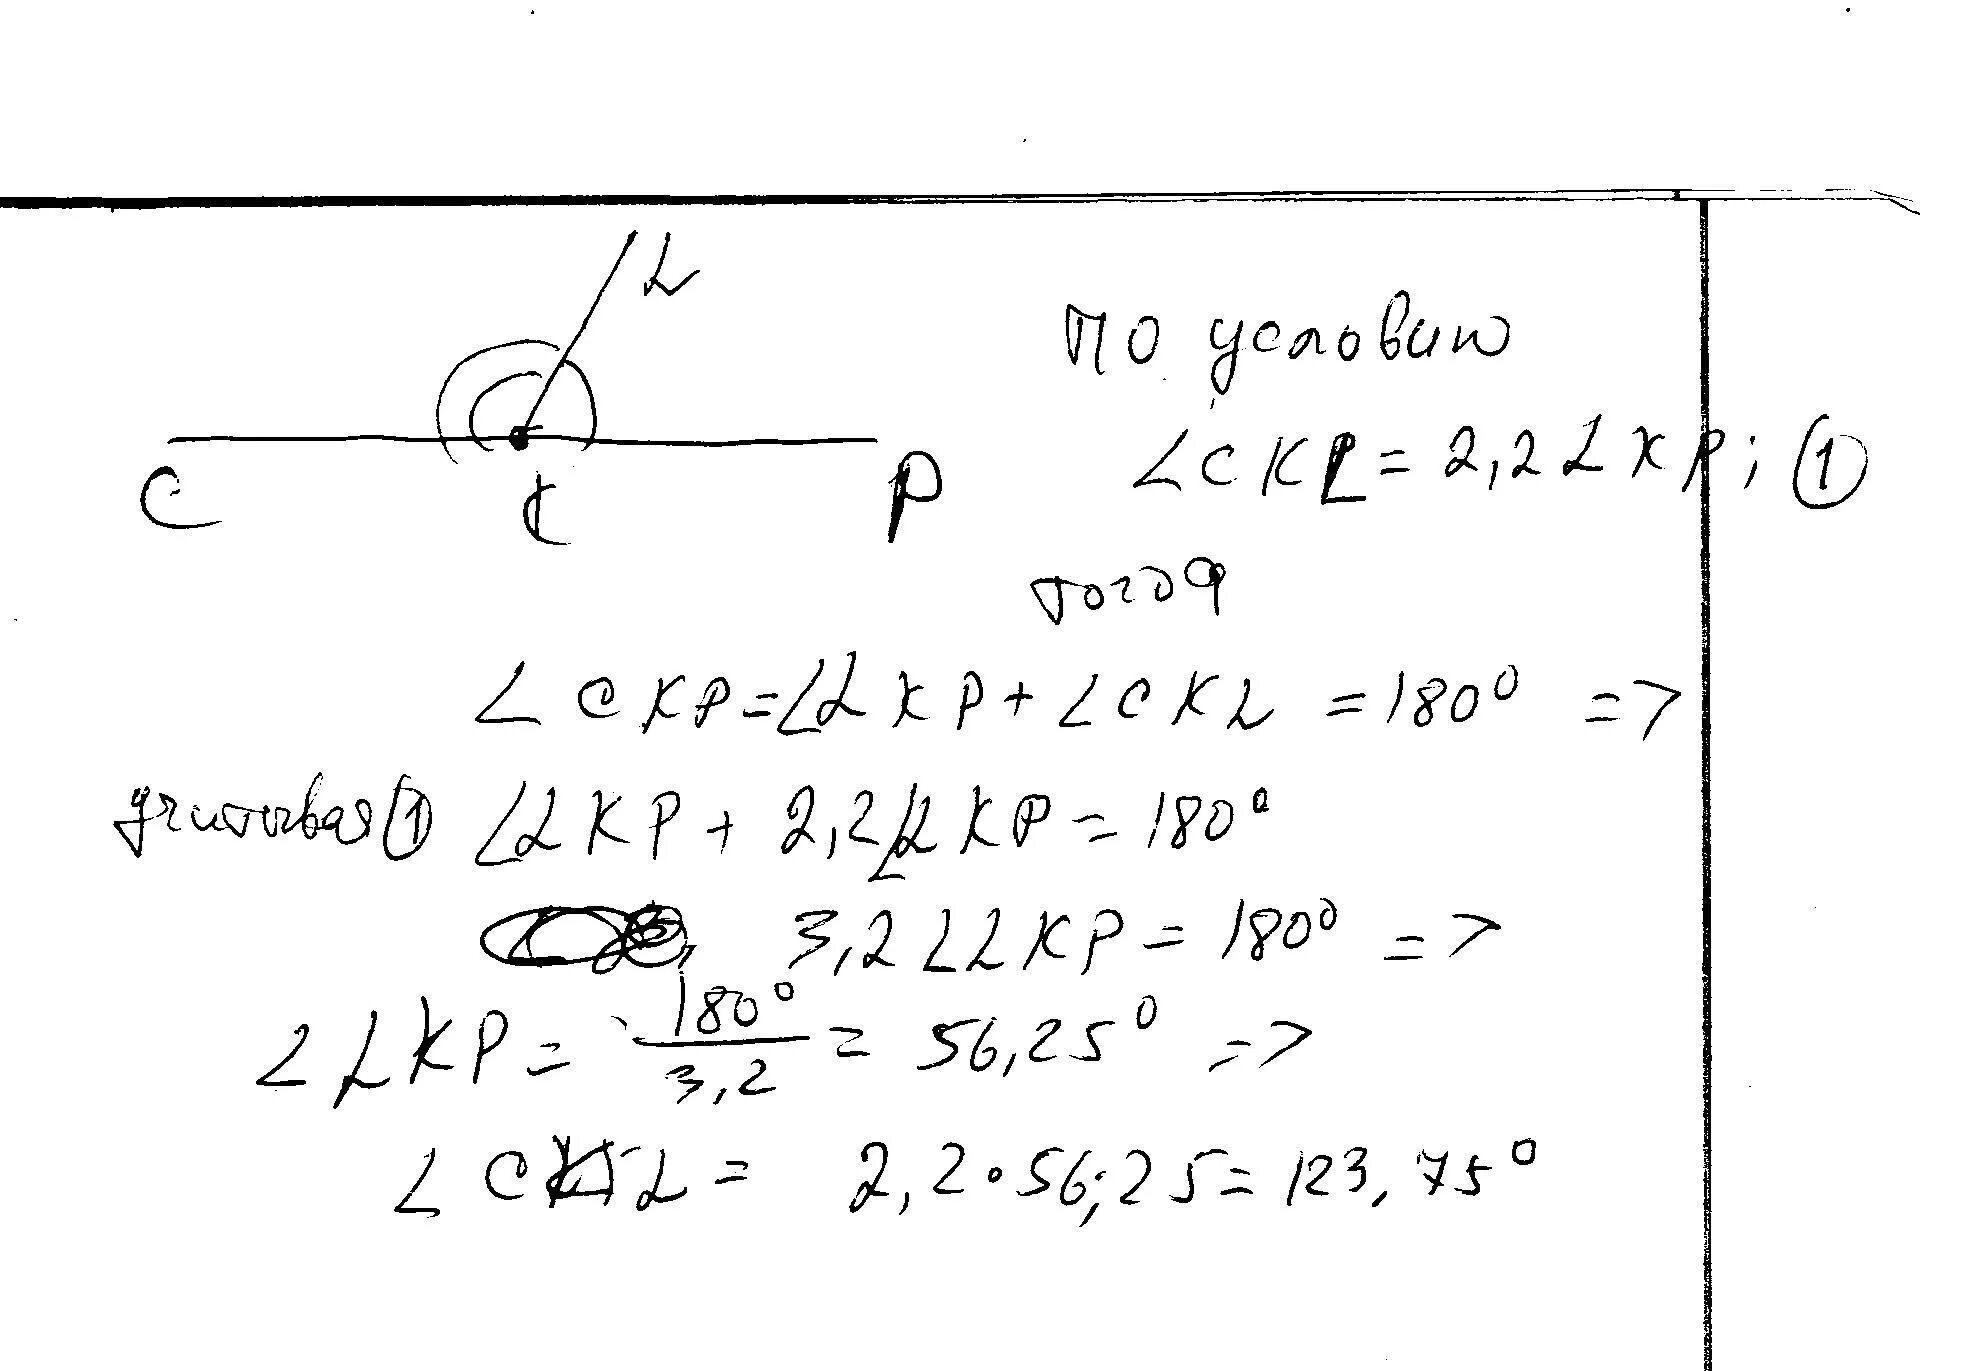 L
C K P
по условию
∠CKL = 2,2 LKP; ①
тогда
∠CKP = ∠LKP + ∠CKL = 180° =>
учитывая ① ∠LKP + 2,2∠LKP = 180°
3,2 ∠LKP = 180° =>
∠LKP = 180°/3,2 = 56,25° =>
∠CKL = 2,2 · 56,25 = 123,75°